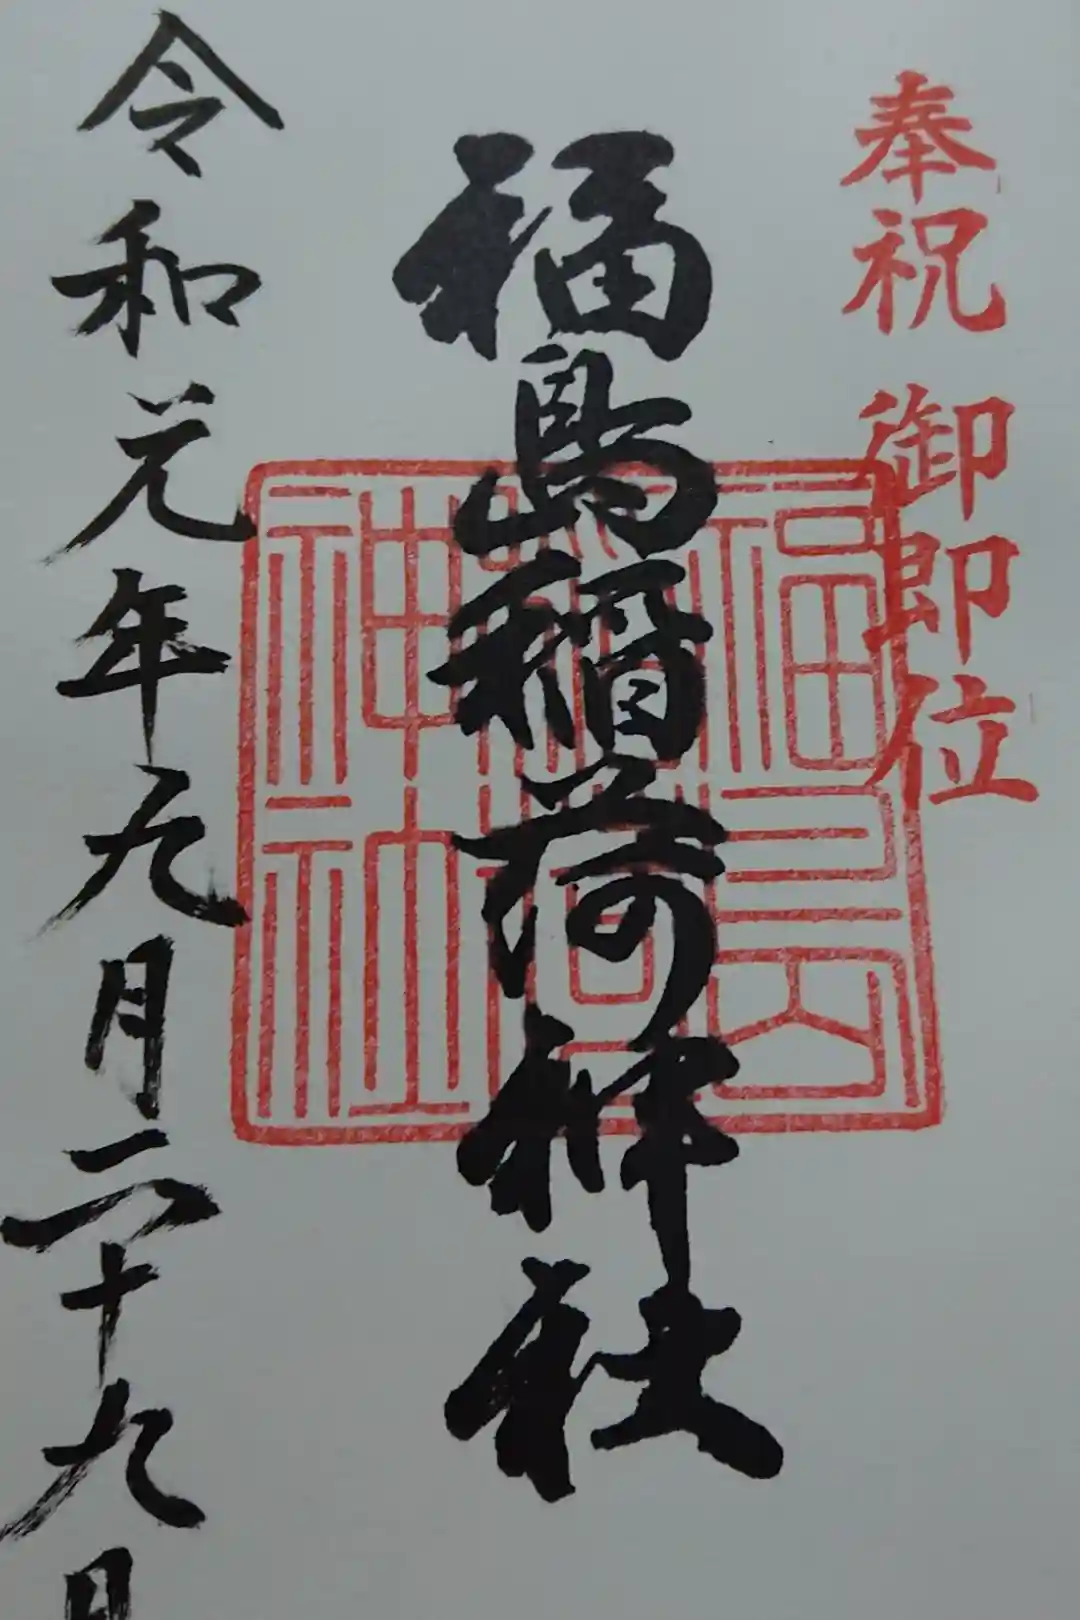 奉祝 御即位
福島稲荷神社
福島
稲荷
神社
令和元年九月二十九日